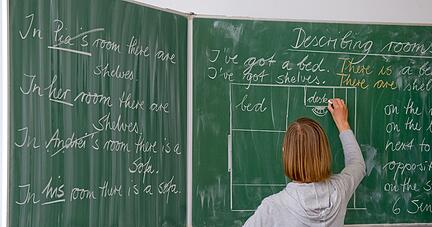 In Pia's room there are
shelves
In her room there are
Shelves.
In André's room there is a
Sofa.
In his room there is a sofa.
Describing rooms
I've got a bed. There is a be
I've got shelves. There are
bed
desk
on the
on the
next to
opposit
on the s
6 Sen